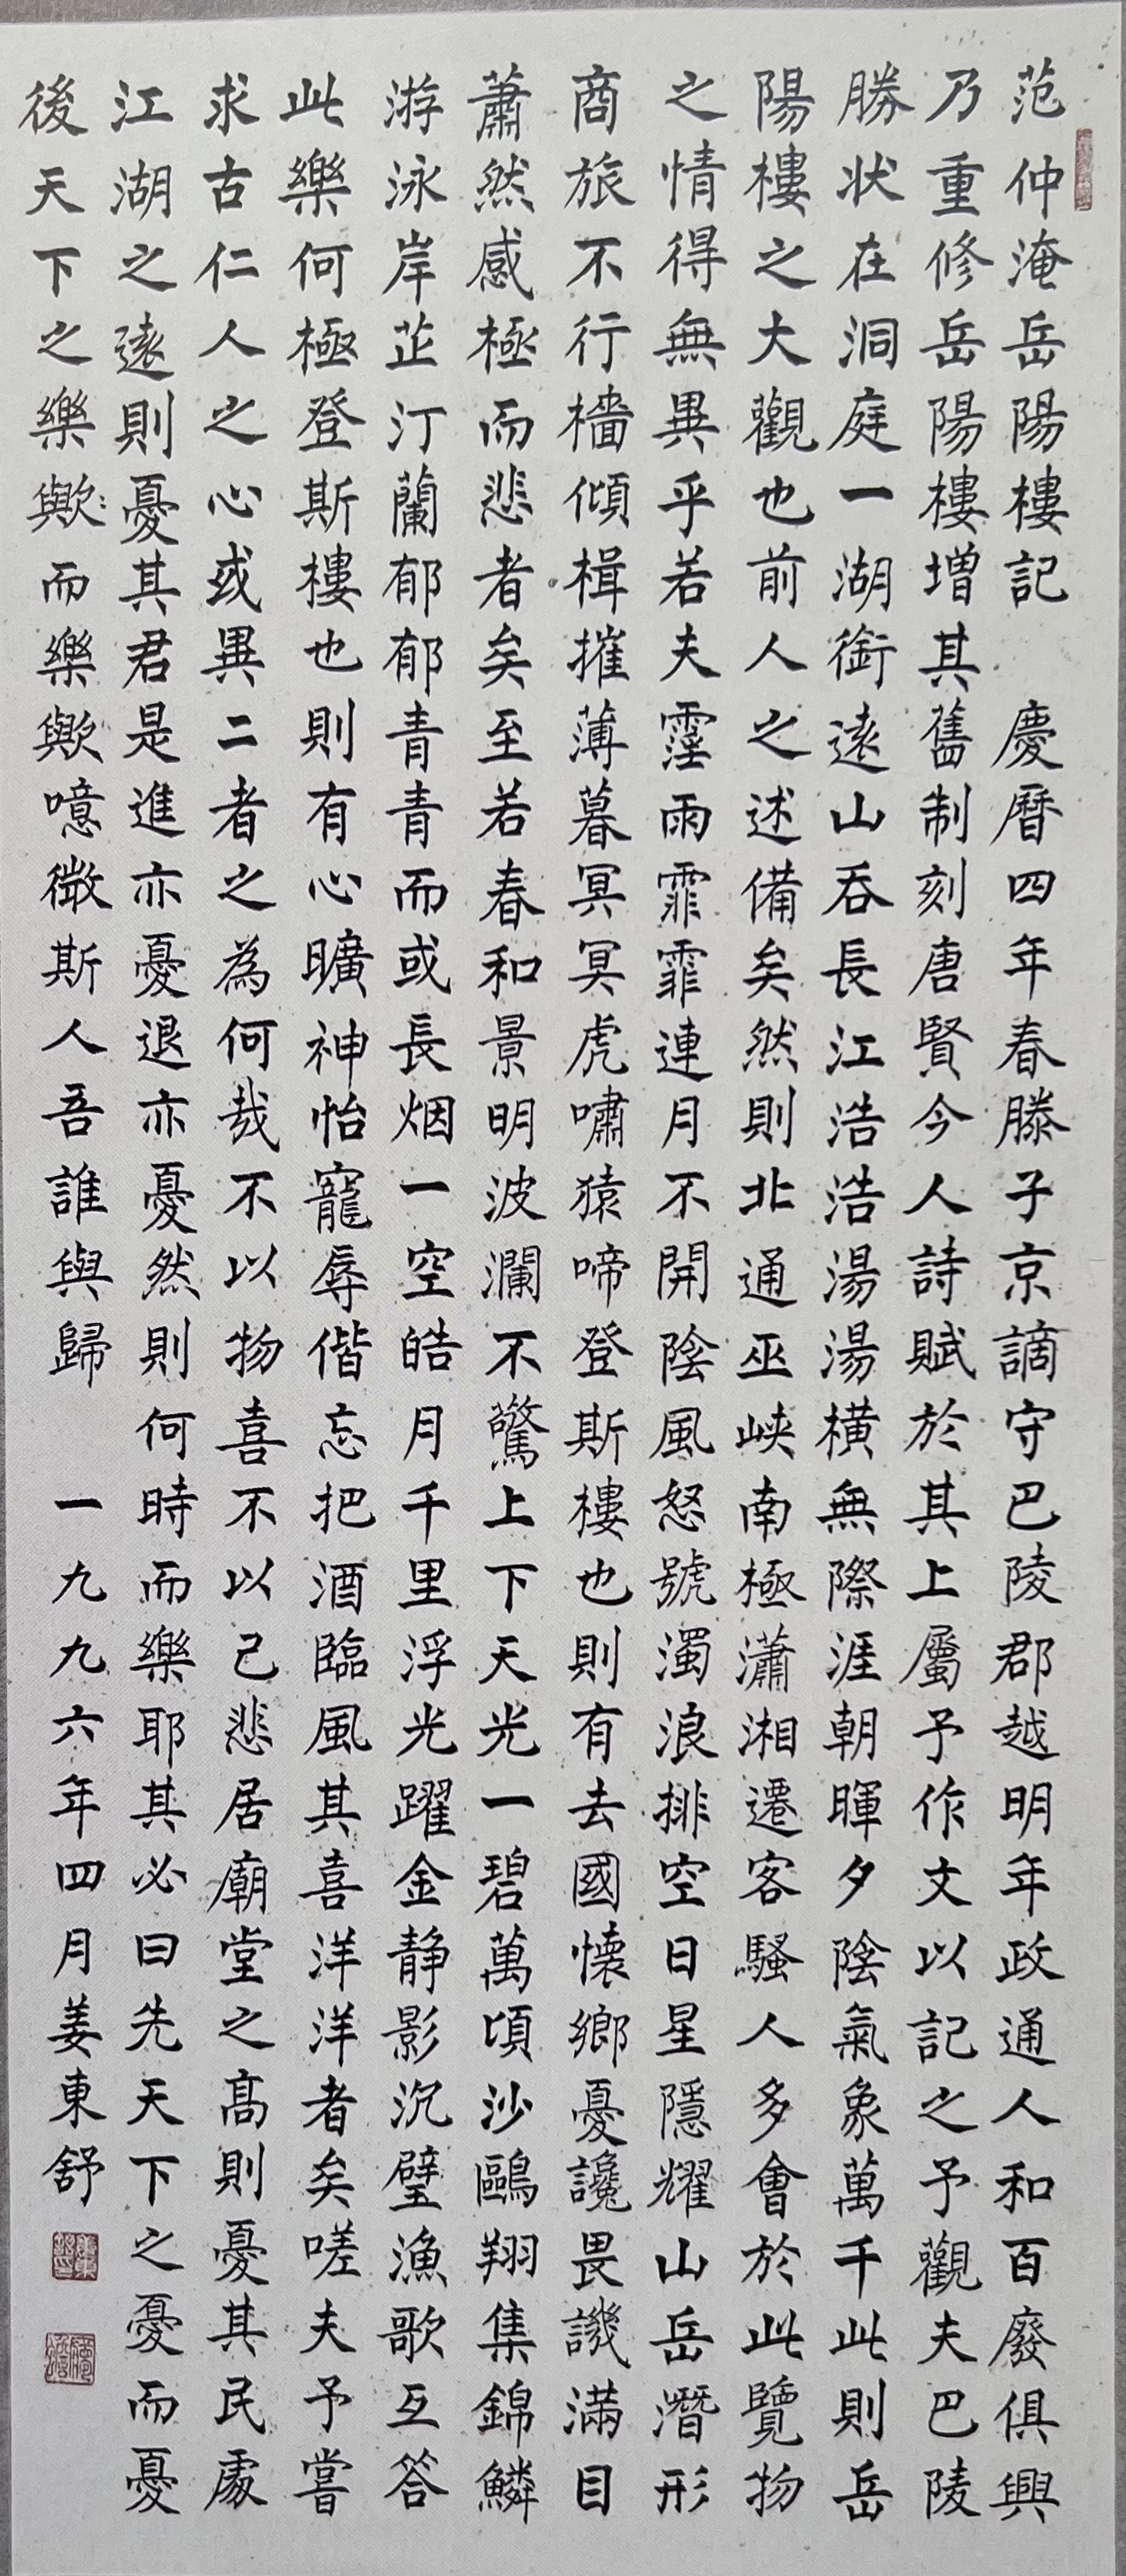 范仲淹岳陽樓記　慶曆四年春滕子京謫守巴陵郡越明年政通人和百廢俱興
乃重修岳陽樓增其舊制刻唐賢今人詩賦於其上屬予作文以記之予觀夫巴陵
勝狀在洞庭一湖銜遠山吞長江浩浩湯湯橫無際涯朝暉夕陰氣象萬千此則岳
陽樓之大觀也前人之述備矣然則北通巫峽南極瀟湘遷客騷人多會於此覽物
之情得無異乎若夫霪雨霏霏連月不開陰風怒號濁浪排空日星隱耀山岳潛形
商旅不行檣傾楫摧薄暮冥冥虎嘯猿啼登斯樓也則有去國懷鄉憂讒畏譏滿目
蕭然感極而悲者矣至若春和景明波瀾不驚上下天光一碧萬頃沙鷗翔集錦鱗
游泳岸芷汀蘭郁郁青青而或長烟一空皓月千里浮光躍金靜影沉璧漁歌互答
此樂何極登斯樓也則有心曠神怡寵辱偕忘把酒臨風其喜洋洋者矣嗟夫予嘗
求古仁人之心或異二者之為何哉不以物喜不以己悲居廟堂之高則憂其民處
江湖之遠則憂其君是進亦憂退亦憂然則何時而樂耶其必曰先天下之憂而憂
後天下之樂歟而樂歟噫微斯人吾誰與歸　一九九六年四月姜東舒